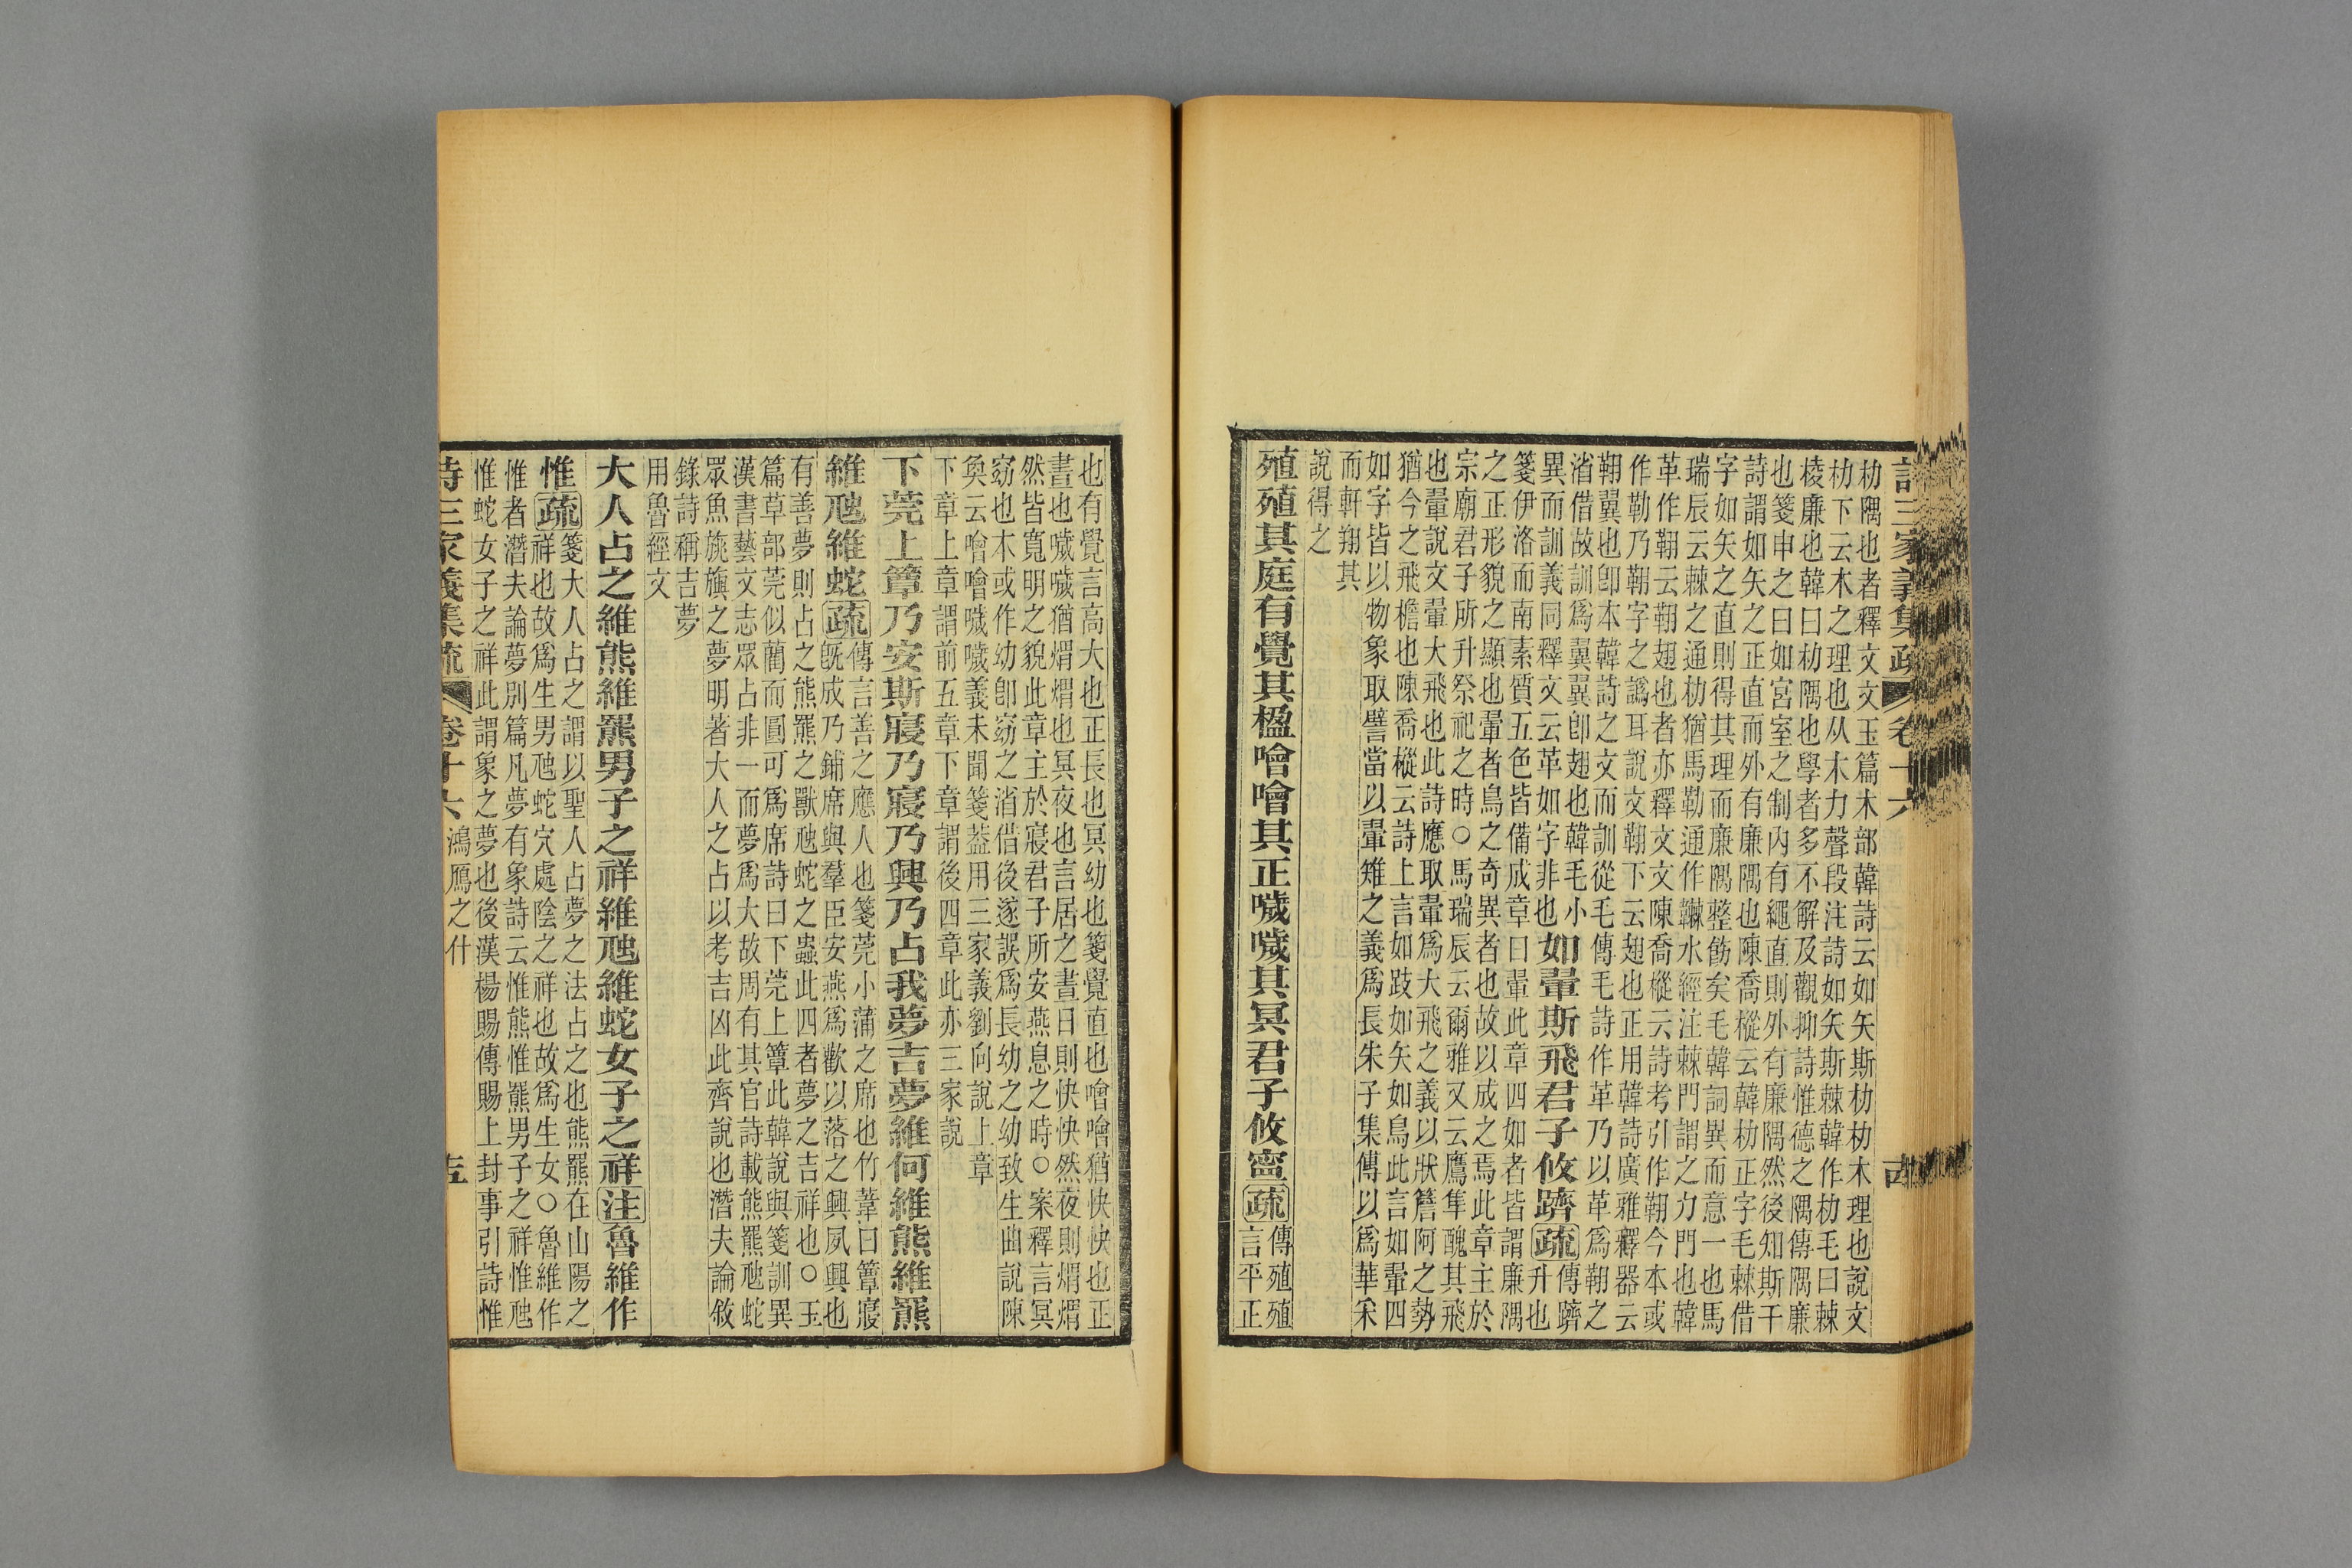 詩三家義集疏 卷十六 十四
朸隅也者釋文文玉篇木部韓詩云如矢斯朸朸木理也說文
朸下云木之理也从木力聲段注詩如矢斯棘韓作朸毛曰棘
棱廉也韓曰朸隅也學者多不解及觀抑詩惟德之隅傳隅廉
也箋申之曰如宮室之制內有繩直則外有廉隅然後知斯干
詩謂如矢之正直而外有廉隅也陳喬樅云韓朸正字毛棘借
字如矢之直則得其理而廉隅整飭矣毛韓詞異而意一也馬
瑞辰云棘之通朸猶馬勒通作水經注棘門謂之力門也韓
革作䎒云䎒翅也者亦釋文文陳喬樅云詩考引作䎒今本或
作勒乃䎒字之譌耳說文䎒下云翅也正用韓詩廣雅釋器云
䎒翼也卽本韓詩之文而訓從毛傳毛詩作革乃以革爲䎒之
渻借故訓爲翼翼卽翅也韓毛小
異而訓義同釋文云革如字非也
如翬斯飛君子攸躋疏
傳躋
升也
箋伊洛而南素質五色皆備成章曰翬此章四如者皆謂廉隅
之正形貌之顯也翬者鳥之奇異者也故以成之焉此章主於
宗廟君子所升祭祀之時〇馬瑞辰云爾雅又云鷹隼醜其飛
也翬說文翬大飛也此詩應取翬爲大飛之義以狀簷阿之勢
猶今之飛檐也陳喬樅云詩上言如跂如矢如鳥此言如翬四
如字皆以物象取譬當以翬雉之義爲長朱子集傳以爲華采
而軒翔其
說得之
殖殖其庭有覺其楹噲噲其正噦噦其冥君子攸寧疏
傳殖殖
言平正
也有覺言高大也正長也冥幼也箋覺直也噲噲猶快快也正
晝也噦噦猶煟煟也冥夜也言居之晝日則快快然夜則煟煟
然皆寬明之貌此章主於寢君子所安燕息之時〇案釋言冥
窈也本或作幼卽窈之渻借後遂誤爲長幼之幼致生曲說陳
奐云噲噲噦噦義未聞箋葢用三家義劉向說上章
下章上章謂前五章下章謂後四章此亦三家說
下莞上簟乃安斯寢乃寢乃興乃占我夢吉夢維何維熊維羆
維虺維蛇疏
傳言善之應人也箋莞小蒲之席也竹葦曰簟寢
旣成乃鋪席與羣臣安燕爲歡以落之興夙興也
有善夢則占之熊羆之獸虺蛇之蟲此四者夢之吉祥也〇玉
篇草部莞似藺而圓可爲席詩曰下莞上簟此韓說與箋訓異
漢書藝文志眾占非一而夢爲大故周有其官詩載熊羆虺蛇
眾魚旐旟之夢明著大人之占以考吉凶此齊說也潛夫論敘
錄詩稱吉夢
用魯經文
大人占之維熊維羆男子之祥維虺維蛇女子之祥注魯維作
惟疏
箋大人占之謂以聖人占夢之法占之也熊羆在山陽之
祥也故爲生男虺蛇穴處陰之祥也故爲生女〇魯維作
惟者潛夫論夢別篇凡夢有象詩云惟熊惟羆男子之祥惟虺
惟蛇女子之祥此謂象之夢也後漢楊賜傳賜上封事引詩惟
詩三家義集疏 卷十六 鴻鴈之什 十五